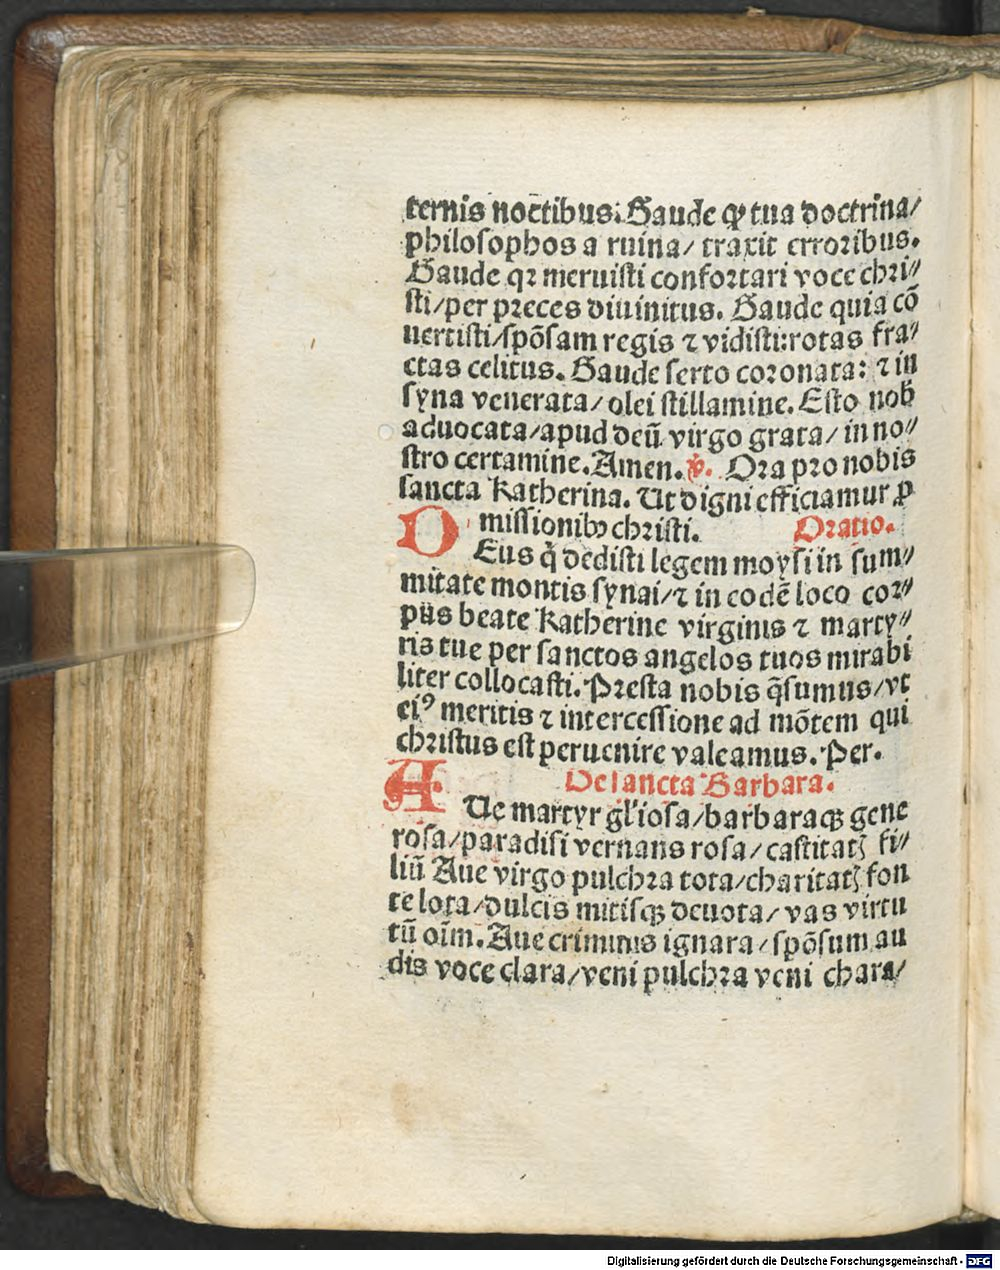 ternis noc̄tibus: Gaude ꝙ tua doctrina/
philosophos a ruina/ traxit erroribus.
Gaude qꝛ meruisti confortari voce chri⸗
sti/per preces diuinitus. Gaude quia cō
uertisti/spōsam regis ⁊ vidisti:rotas fra⸗
ctas celitus. Gaude serto coronata: ⁊ in
syna venerata/ olei stillamine. Esto nob̄
aduocata/apud deū virgo grata/ in no⸗
stro certamine. Amen. ℣. Ora pro nobis
sancta Katherina. Ut digni efficiamur ꝓ
missionibꝯ christi. Oratio.
DEus q̇ dedisti legem moysi in sum⸗
mitate montis synai/⁊ in eodē loco cor⸗
pus beate Katherine virginis ⁊ marty⸗
ris tue per sanctos angelos tuos mirabi
liter collocasti. Presta nobis q̄sumus/vt
eiꝰ meritis ⁊ intercessione ad mōtem qui
christus est peruenire valeamus. Per.
De sancta Barbara.
AUe martyr gl'iosa/barbaraqꝫ gene
rosa/paradisi vernans rosa/ castitatꝭ fi⸗
liū Aue virgo pulchra tota/charitatꝭ fon
te lota/dulcis mitisqꝫ deuota/ vas virtu
tū oīm. Aue criminis ignara/spōsum au
dis voce clara/veni pulchra veni chara/
Digitalisierung gefördert durch die Deutsche Forschungsgemeinschaft - DFG